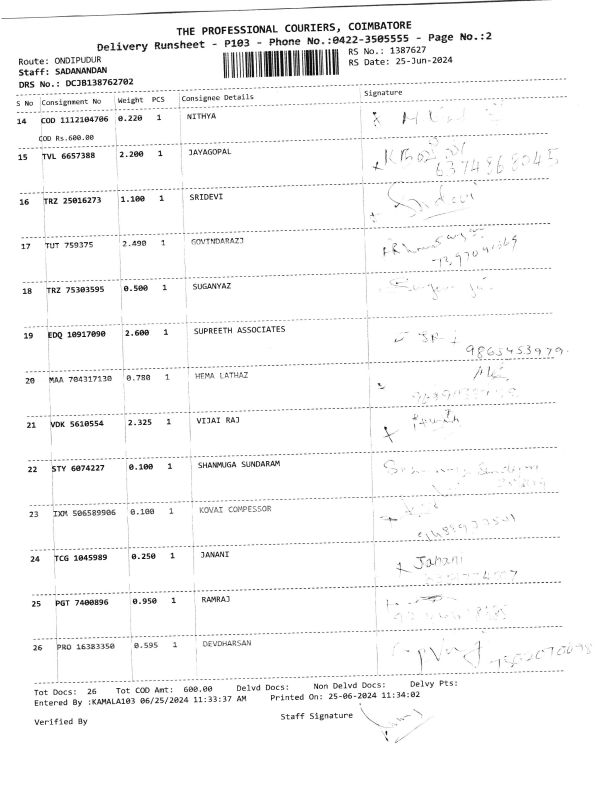 THE PROFESSIONAL COURIERS, COIMBATORE
Delivery Runsheet - P103 - Phone No.:0422-3505555 - Page No.:2
Route: ONDIPUDUR RS No.: 1387627
Staff: SADANANDAN RS Date: 25-Jun-2024
DRS No.: DCJB138762702
S No Consignment No Weight PCS Consignee Details Signature
14 COD 1112104706 0.220 1 NITHYA
COD Rs.600.00
15 TVL 6657388 2.200 1 JAYAGOPAL
6374868045
16 TRZ 25016273 1.100 1 SRIDEVI Sridevi
17 TUT 759375 2.490 1 GOVINDARAZJ
18 TRZ 75303595 0.500 1 SUGANYAZ
19 EDQ 10917090 2.600 1 SUPREETH ASSOCIATES
9865453979
20 MAA 704317130 0.780 1 HEMA LATHAZ
21 VDK 5610554 2.325 1 VIJAI RAJ
22 STY 6074227 0.100 1 SHANMUGA SUNDARAM
23 IXM 506589906 0.100 1 KOVAI COMPESSOR
24 TCG 1045989 0.250 1 JANANI Janani
25 PGT 7400896 0.950 1 RAMRAJ
26 PRO 16383350 0.595 1 DEVDHARSAN
Tot Docs: 26 Tot COD Amt: 600.00 Delvd Docs: Non Delvd Docs: Delvy Pts:
Entered By :KAMALA103 06/25/2024 11:33:37 AM Printed On: 25-06-2024 11:34:02
Verified By Staff Signature